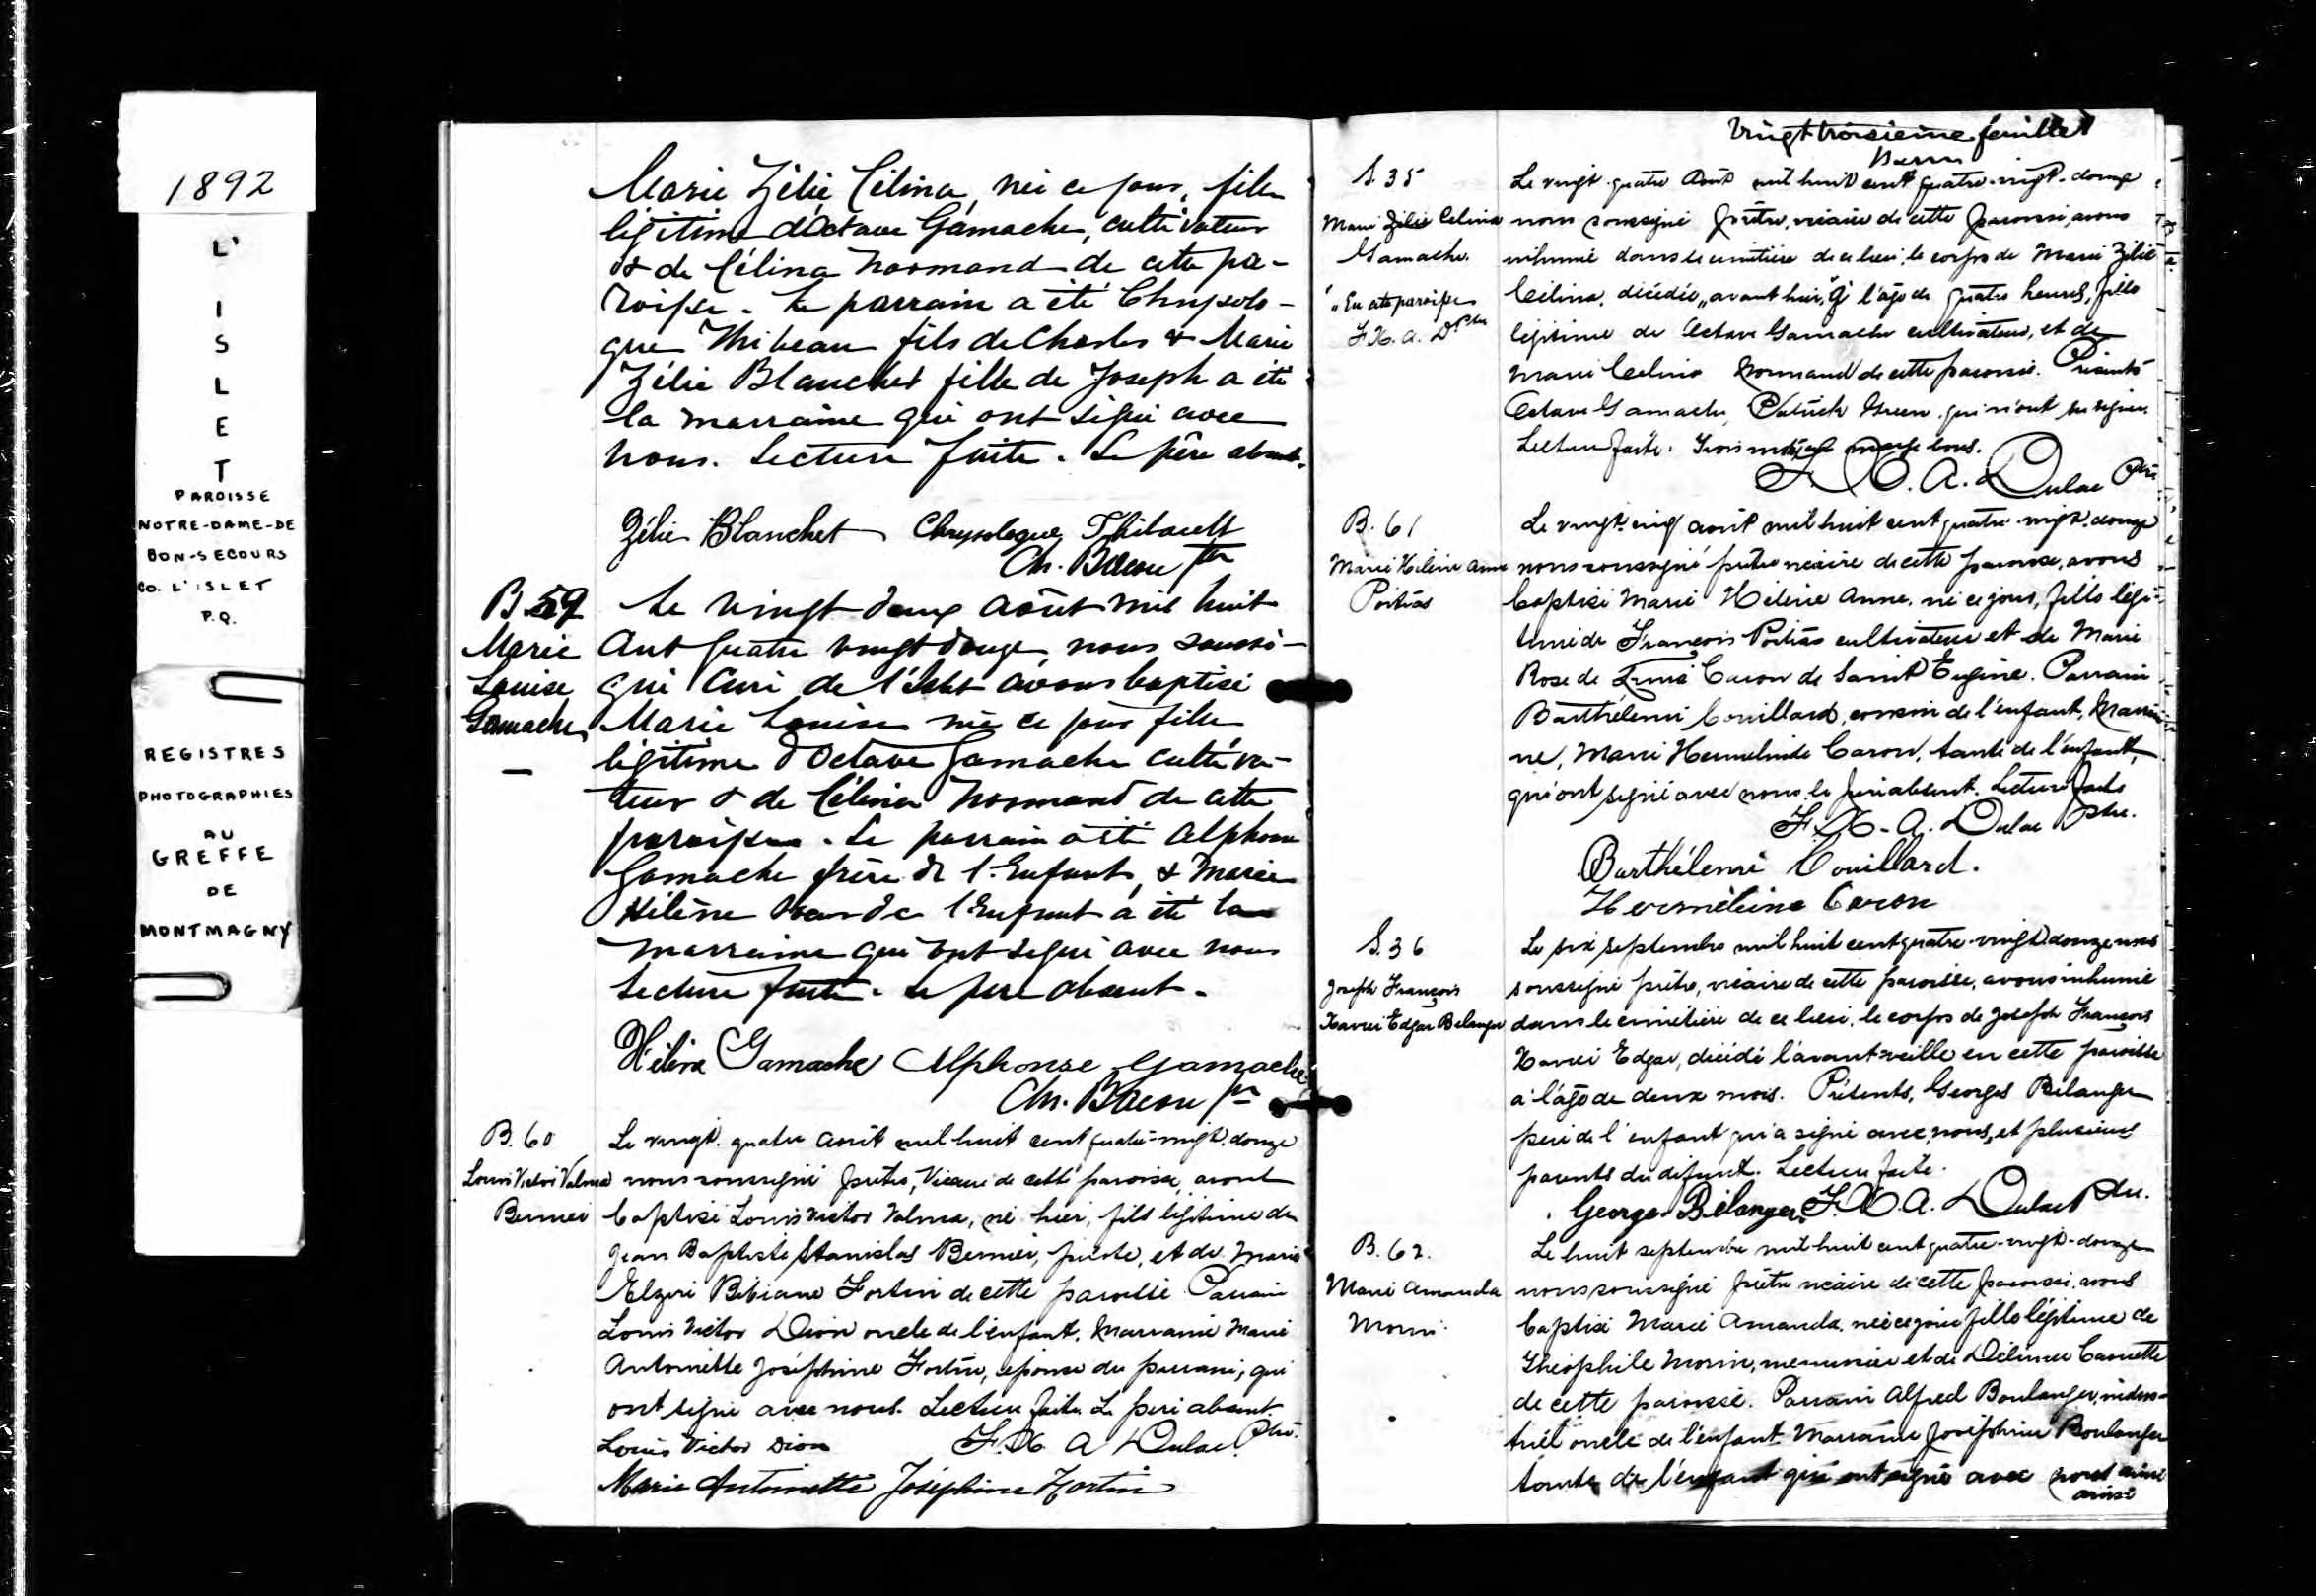 1892
L'
I
S
L
E
T
PAROISSE
NOTRE-DAME-DE
BON-SECOURS
CO. L'ISLET
P.Q.
REGISTRES
PHOTOGRAPHIES
AU
GREFFE
DE
MONTMAGNY
Marie Zélie Célina, née ce jour, fille
légitime d'Octave Gamache, cultivateur
& de Célina Normand de cette pa-
roisse. Le parrain a été Chrysolo-
gue Thibeau fils de Charles & Marie
Zélie Blanchet fille de Joseph a été
la marraine qui ont signé avec
nous. Lecture faite. Le père absent.
Zélie Blanchet Chrysologue Thibault
Ch. Bacon ptr
B 59
Marie
Louise
Gamache
Le vingt deux août mil huit
cent quatre vingt douze, nous soussi-
gné curé de l'Islet avons baptisé
Marie Louise née ce jour fille
légitime d'Octave Gamache cultiva-
teur & de Célina Normand de cette
paroisse. Le parrain a été Alphonse
Gamache frère de l'Enfant, & Marie
Hélène de l'Enfant a été la
marraine qui ont signé avec nous
Lecture faite. Le père absent.
Héléna Gamache Alphonse Gamache
Ch. Bacon ptr
B. 60
Louis Victor Valma
Bernier
Le vingt-quatre août mil huit cent quatre-vingt-douze
nous soussigné prêtre, Vicaire de cette paroisse, avons
baptisé Louis Victor Valma, né hier, fils légitime de
Jean Baptiste Stanislas Bernier, pilote, et de Marie
Elzire Bibiane Fortin de cette paroisse. Parrain
Louis Victor Dion oncle de l'enfant. Marraine Marie
Antoinette Joséphine Fortin, épouse du parrain, qui
ont signé avec nous. Lecture faite. Le père absent.
Louis Victor Dion F. X. A. Dulac Ptre.
Marie Antoinette Joséphine Fortin
Vingt troisième feuillet
S. 35
Marie Zélie Célina
Gamache.
"En cette paroisse
F. X. A. D. Ptre
Le vingt-quatre Août mil huit cent quatre-vingt-douze
nous soussigné prêtre, vicaire de cette paroisse, avons
inhumé dans le cimetière de ce lieu, le corps de Marie Zélie
Célina, décédée, avant hier, à l'âge de quatre heures, fille
légitime de Octave Gamache cultivateur, et de
Marie Célina Normand de cette paroisse. Présents
Octave Gamache, Patrick Green qui n'ont su signer.
Lecture faite. Trois mots en marge bons.
F. X. A. Dulac Ptre
B. 61
Marie Hélène Anne
Poitras
Le vingt-cinq août mil huit cent quatre-vingt-douze
nous soussigné prêtre vicaire de cette paroisse, avons
baptisé Marie Hélène Anne, née ce jour, fille légi-
time de François Poitras cultivateur et de Marie
Rose de Lima Caron de Saint Eugène. Parrain
Barthélemi Couillard, cousin de l'enfant, Marrai-
ne, Marie Hermélinde Caron, tante de l'enfant,
qui ont signé avec nous, le père absent. Lecture faite
F. X. A. Dulac Ptre.
Barthélemi Couillard.
Herméline Caron
S. 36
Joseph François
Xavier Edgar Bélanger
Le six septembre mil huit cent quatre-vingt-douze nous
soussigné prêtre, vicaire de cette paroisse, avons inhumé
dans le cimetière de ce lieu, le corps de Joseph François
Xavier Edgar, décédé l'avant-veille en cette paroisse
à l'âge de deux mois. Présents, Georges Bélanger
père de l'enfant qui a signé avec nous, et plusieurs
parents du défunt. Lecture faite.
George Bélanger, F. X. A. Dulac Ptre.
B. 62.
Marie Amanda
Morin.
Le huit septembre mil huit cent quatre-vingt-douze
nous soussigné prêtre vicaire de cette paroisse avons
baptisé Marie Amanda, née ce jour fille légitime de
Théophile Morin, menuisier et de Délima Caouette
de cette paroisse. Parrain Alfred Boulanger, indus-
triel oncle de l'enfant. Marraine Joséphine Boulanger
tante de l'enfant qui ont signé avec nous ainsi
ainsi